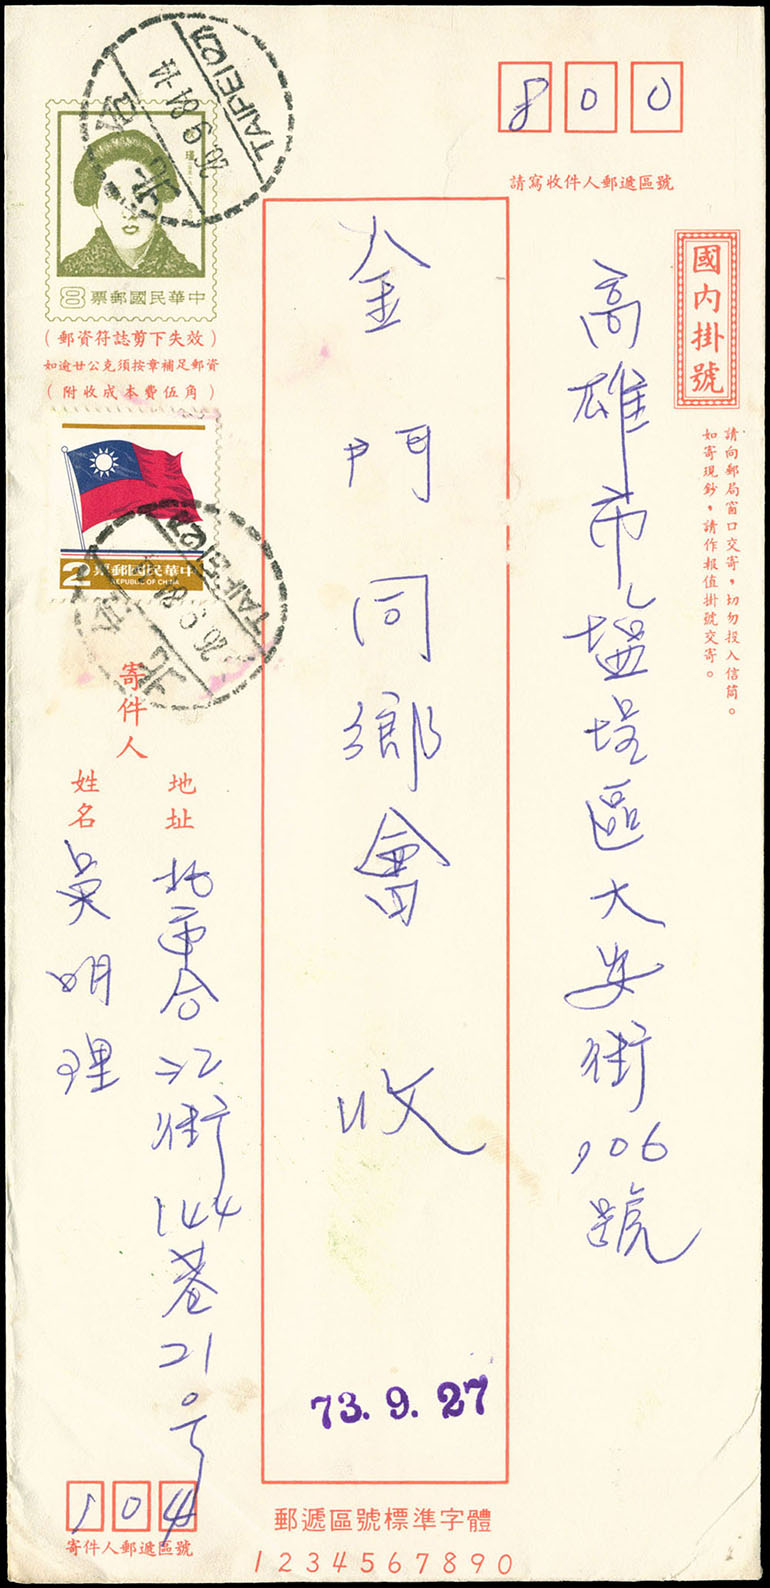 800
請寫收件人郵遞區號
國內掛號
請向郵局窗口交寄，切勿投入信筒。
如寄現鈔，請作報值掛號交寄。
高雄市塩埕區大安街106號
金門同鄉會 收
73.9.27
TAIPEI
26.9.84-14
台北
8 票郵國民華中
（郵資符誌剪下失效）
如逾廿公克須按章補足郵資
（附收成本費伍角）
2 票郵國民華中
REPUBLIC OF CHINA
TAIPEI
26.9.84
台北
寄件人
地址 北市合江街144巷21号
姓名 吳明理
104
寄件人郵遞區號
郵遞區號標準字體
1234567890